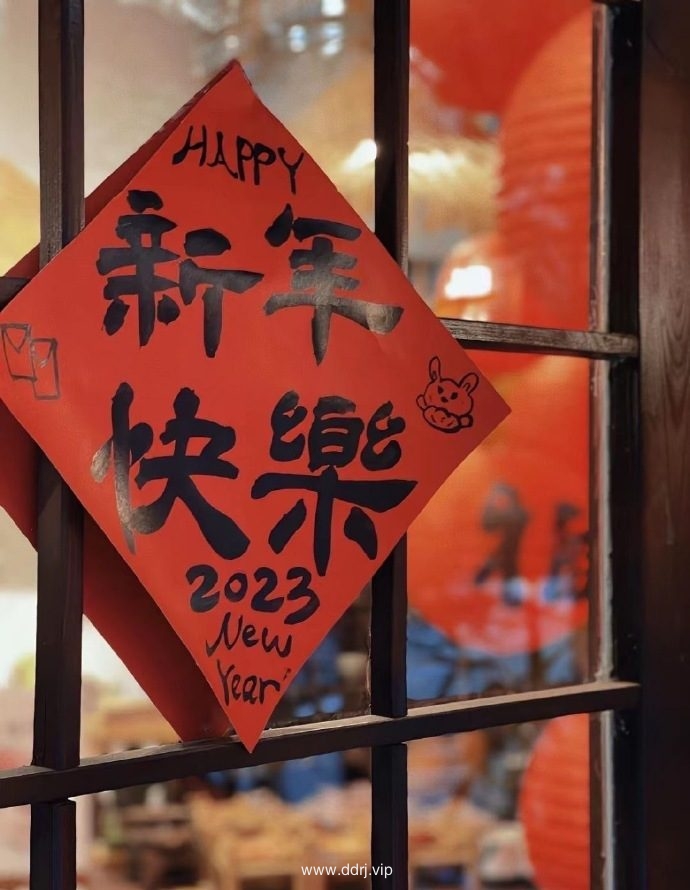 HAPPY
新年
快樂
2023
New
Year
www.ddrj.vip